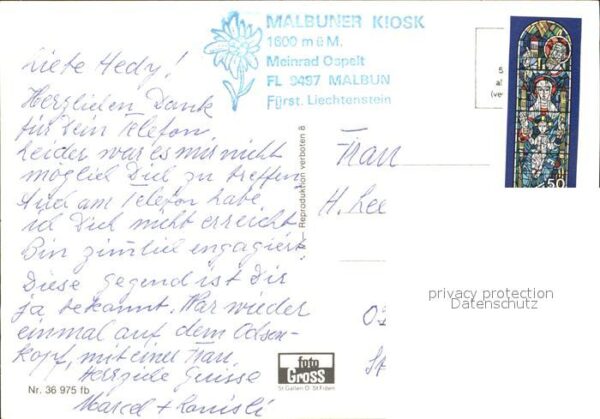 MALBUNER KIOSK
1600 m ü M.
Meinrad Oppelt
FL 9497 MALBUN
Fürst. Liechtenstein
Liebe Hedy!
Herzlichen Dank
für Dein Telefon
Leider war es mir nicht
möglich Dich zu treffen
Und am Telefon habe
ich Dich nicht erreicht
Bin ziemlich engagiert
Diese Gegend ist Dir
ja bekannt. War wieder
einmal auf dem Ochsen-
kopf, mit einer Frau
Herzliche Grüsse
Marcel +
Nr. 36 975 fb
Reproduktion verboten 8
foto
Gross
St. Gallen
Frau
H. Lee
50
privacy protection
Datenschutz